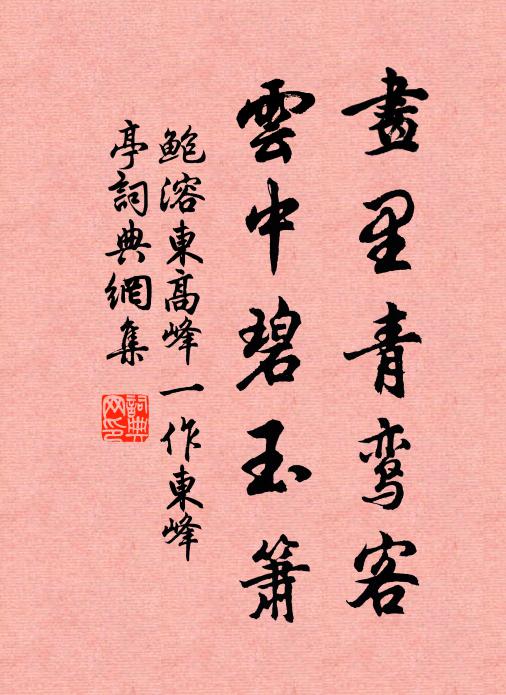 畫里青鸾客
雲中碧玉簫
鮑溶東高峰一作東峰
亭詞典網集
詞典
网印